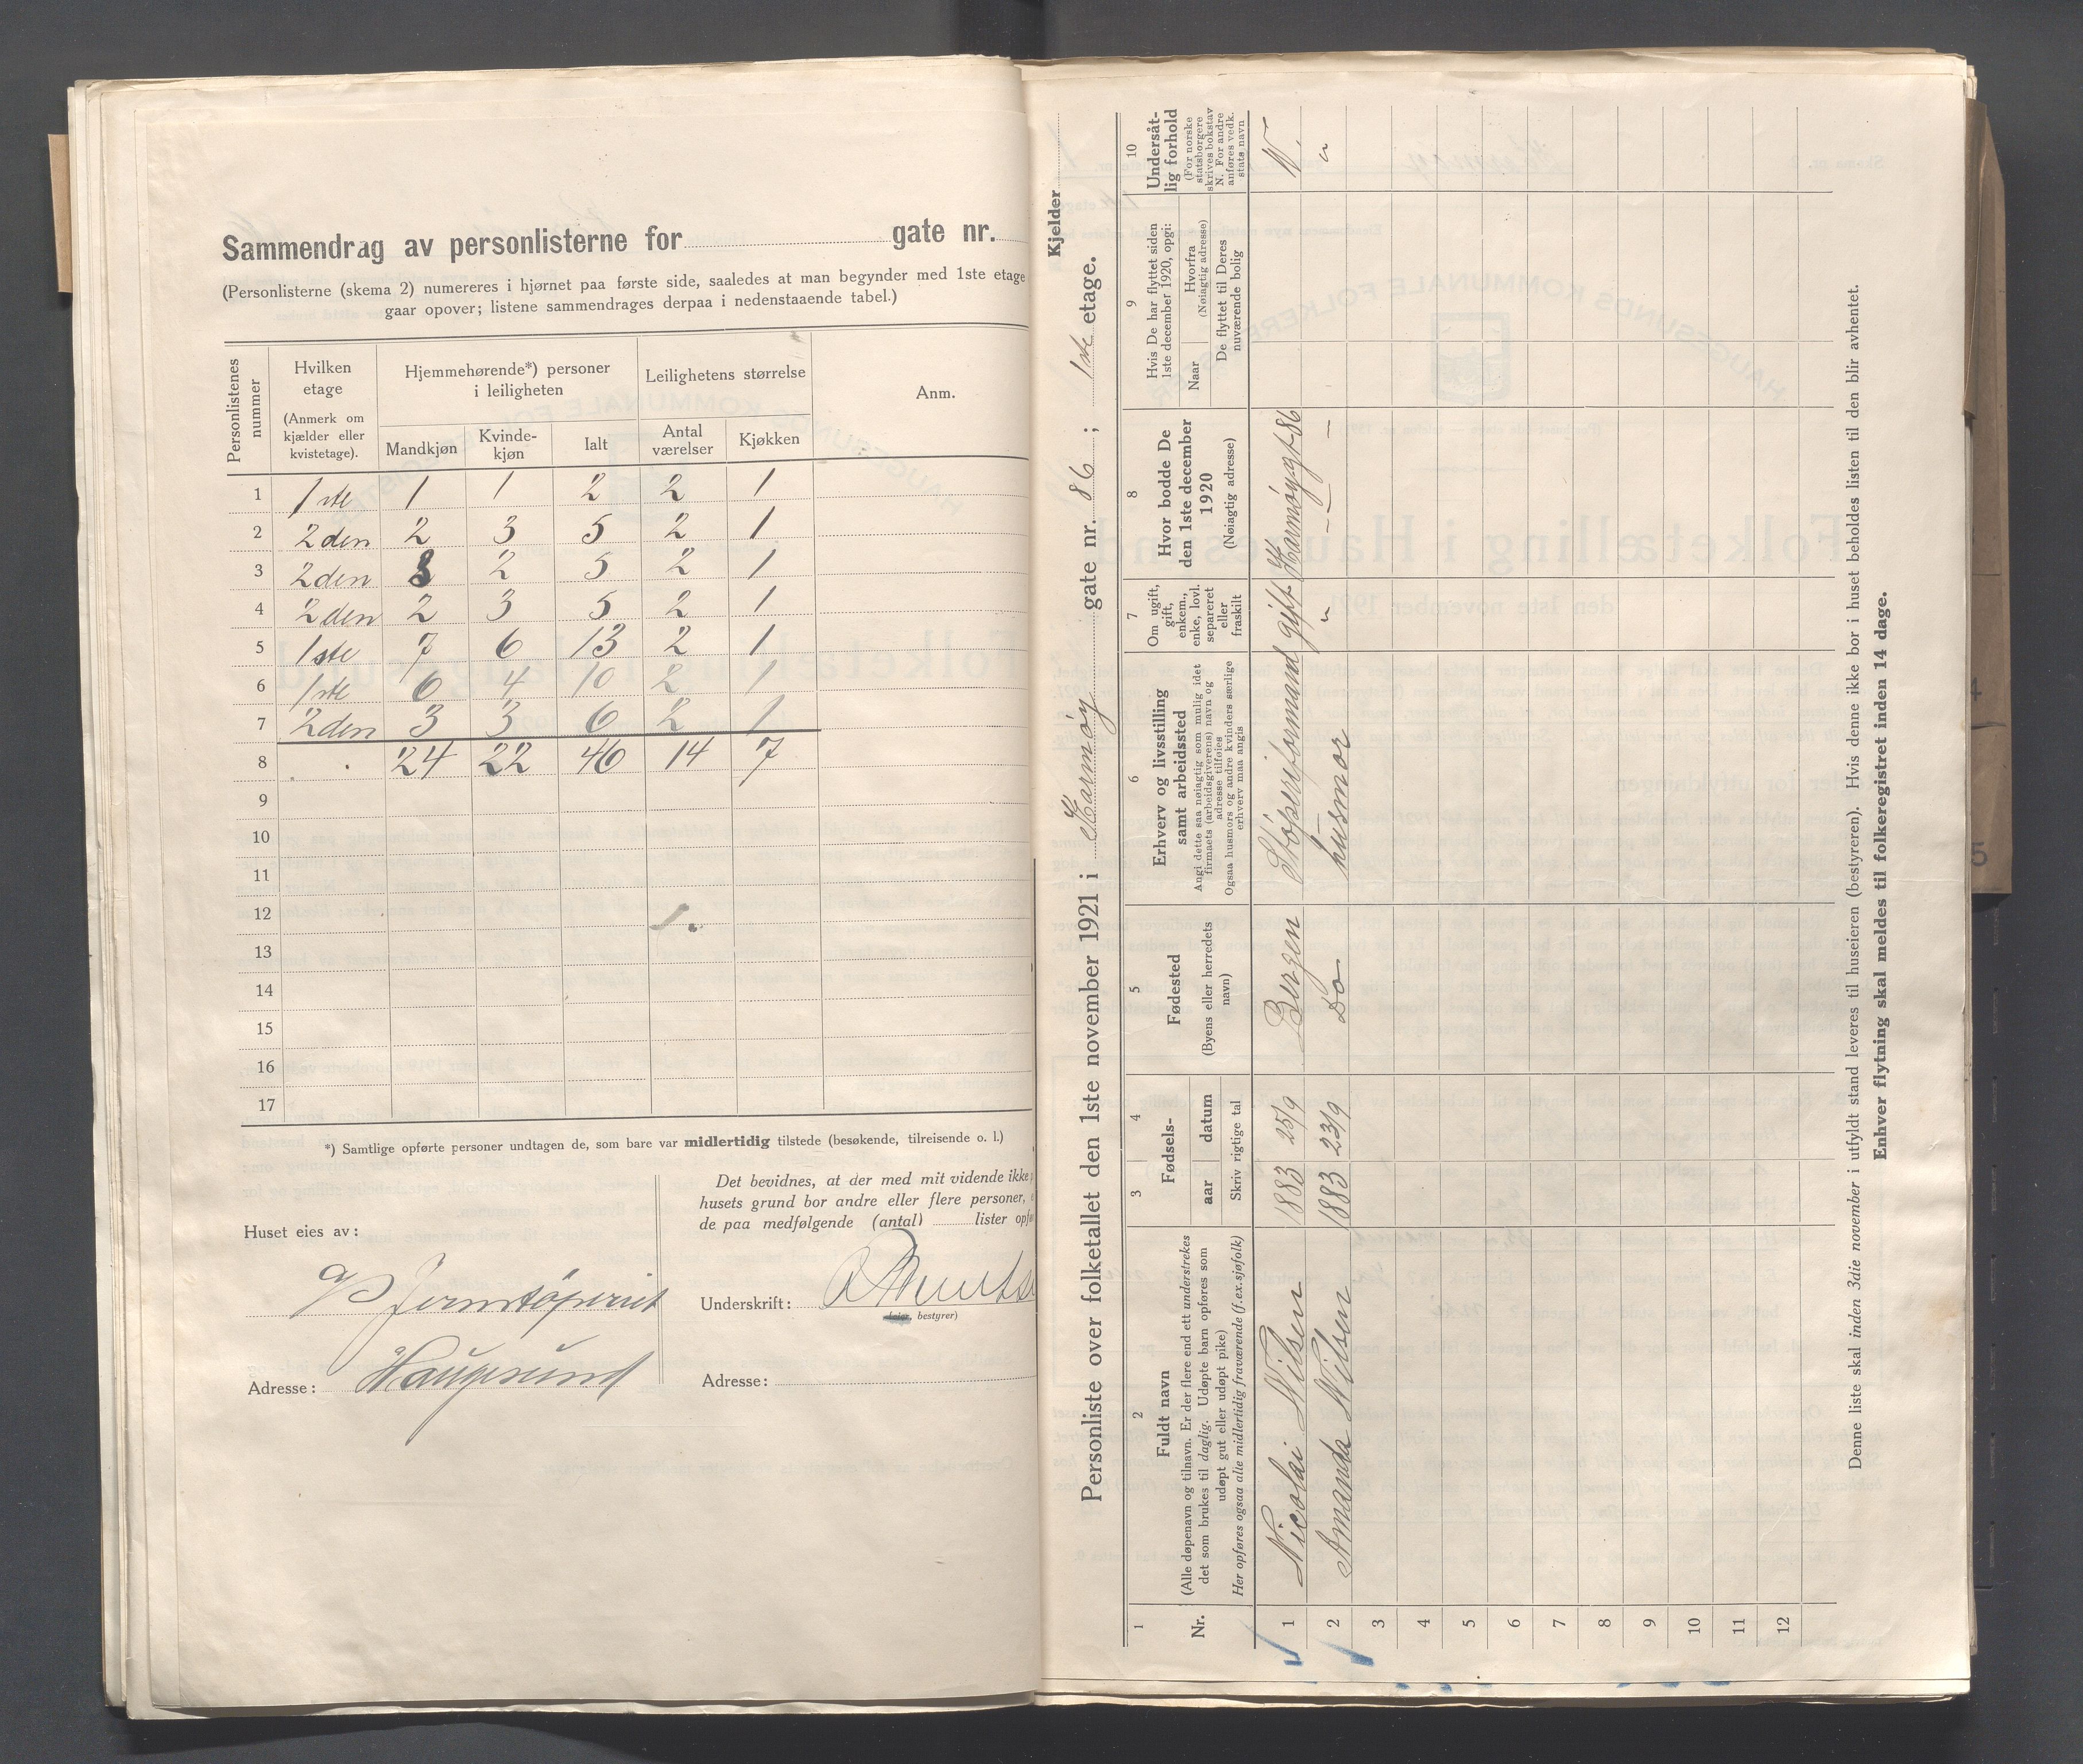 Sammendrag av personlisterne for gate nr.
(Personlisterne (skema 2) numereres i hjørnet paa første side, saaledes at man begynder med 1ste etage
gaar opover; listene sammendrages derpaa i nedenstaaende tabel.)
Personlistenes nummer
Hvilken etage
(Anmerk om kjælder eller kvistetage).
Hjemmehørende*) personer i leiligheten
Mandkjøn
Kvindekjøn
Ialt
Leilighetens størrelse
Antal værelser
Kjøkken
Anm.
1 1ste 1 1 2 2 1
2 2den 2 3 5 2 1
3 2den 3 2 5 2 1
4 2den 2 3 5 2 1
5 1ste 7 6 13 2 1
6 1ste 6 4 10 2 1
7 2den 3 3 6 2 1
8 24 22 46 14 7
9
10
11
12
13
14
15
16
17
*) Samtlige opførte personer undtagen de, som bare var midlertidig tilstede (besøkende, tilreisende o. l.)
Huset eies av:
A/S Jernstöperiet
Adresse: Haugesund
Det bevidnes, at der med mit vidende ikke
husets grund bor andre eller flere personer,
de paa medfølgende (antal) lister opfø
Underskrift:
(eier, bestyrer)
Adresse:
Kjelder
Personliste over folketallet den 1ste november 1921 i Karmöy gate nr. 86 ; 1ste etage.
1
Nr.
2
Fuldt navn
(Alle døpenavn og tilnavn. Er der flere end ett understrekes
det som brukes til daglig. Udøpte barn opføres som
udøpt gut eller udøpt pike)
Her opføres ogsaa alle midlertidig fraværende (f. ex. sjøfolk)
3 4
Fødsels-
aar datum
Skriv rigtige tal
5
Fødested
(Byens eller herredets navn)
6
Erhverv og livsstilling
samt arbeidssted
Angi dette saa nøiagtig som mulig idet
firmaets (arbeidsgiverens) navn og
adresse tilføies
Ogsaa husmors og andre kvinders særlige
erhverv maa angis
7
Om ugift, gift, enkem., enke, lovl. separeret eller fraskilt
8
Hvor bodde De
den 1ste december
1920
(Nøiagtig adresse)
9
Hvis De har flyttet siden
1ste december 1920, opgi:
Naar
Hvorfra
(Nøiagtig adresse)
De flyttet til Deres
nuværende bolig
10
Undersåtlig forhold
(For norske
statsborgere
skrives bokstav
N. For andre
anføres vedk.
stats navn
1 Nicolai Nilsen 1883 25/9 Bergen Stöperiformand gift Karmöygt 86 N.
2 Amanda Nilsen 1883 23/9 Do husmor " - " - "
3
4
5
6
7
8
9
10
11
12
Denne liste skal inden 3die november i utfyldt stand leveres til huseieren (bestyreren). Hvis denne ikke bor i huset beholdes listen til den blir avhentet.
Enhver flytning skal meldes til folkeregistret inden 14 dage.